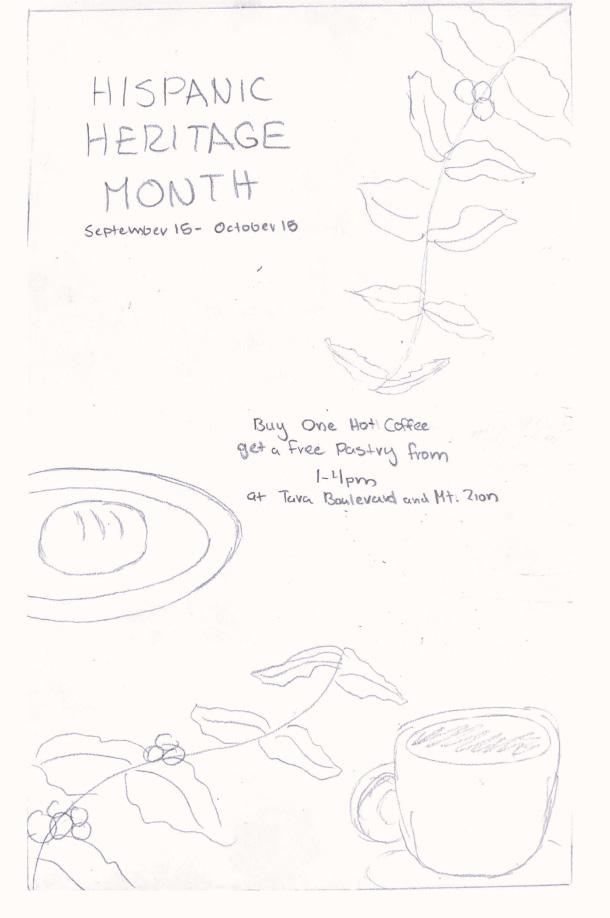 HISPANIC
HERITAGE
MONTH
September 15 - October 15
Buy One Hot Coffee
get a free Pastry from
1-4pm
at Tara Boulevard and Mt. Zion